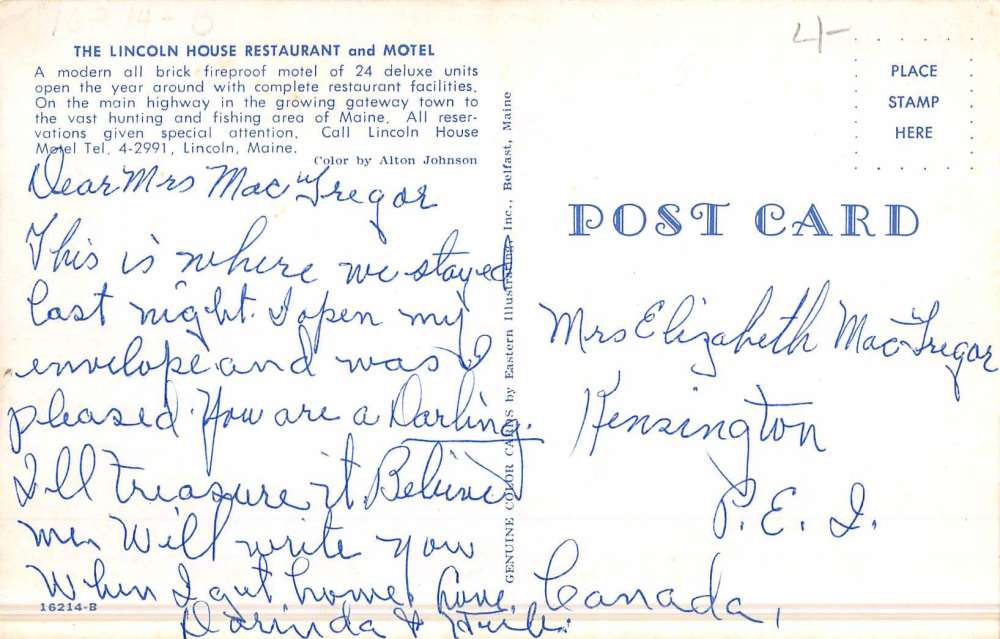 16214-B
THE LINCOLN HOUSE RESTAURANT and MOTEL
A modern all brick fireproof motel of 24 deluxe units
open the year around with complete restaurant facilities.
On the main highway in the growing gateway town to
the vast hunting and fishing area of Maine. All reser-
vations given special attention. Call Lincoln House
Motel Tel. 4-2991, Lincoln, Maine.
Color by Alton Johnson
Dear Mrs MacGregor
This is where we stayed
last night. I open my
envelope and was I
pleased. You are a Darling.
I'll treasure it. Believe
me. Will write you
When I get home. Love,
Dorinda &
16214-B
GENUINE COLOR CARDS by Eastern Illustrating, Inc., Belfast, Maine
4-
PLACE
STAMP
HERE
POST CARD
Mrs Elizabeth MacGregor
Kensington
P. E. I.
Canada,